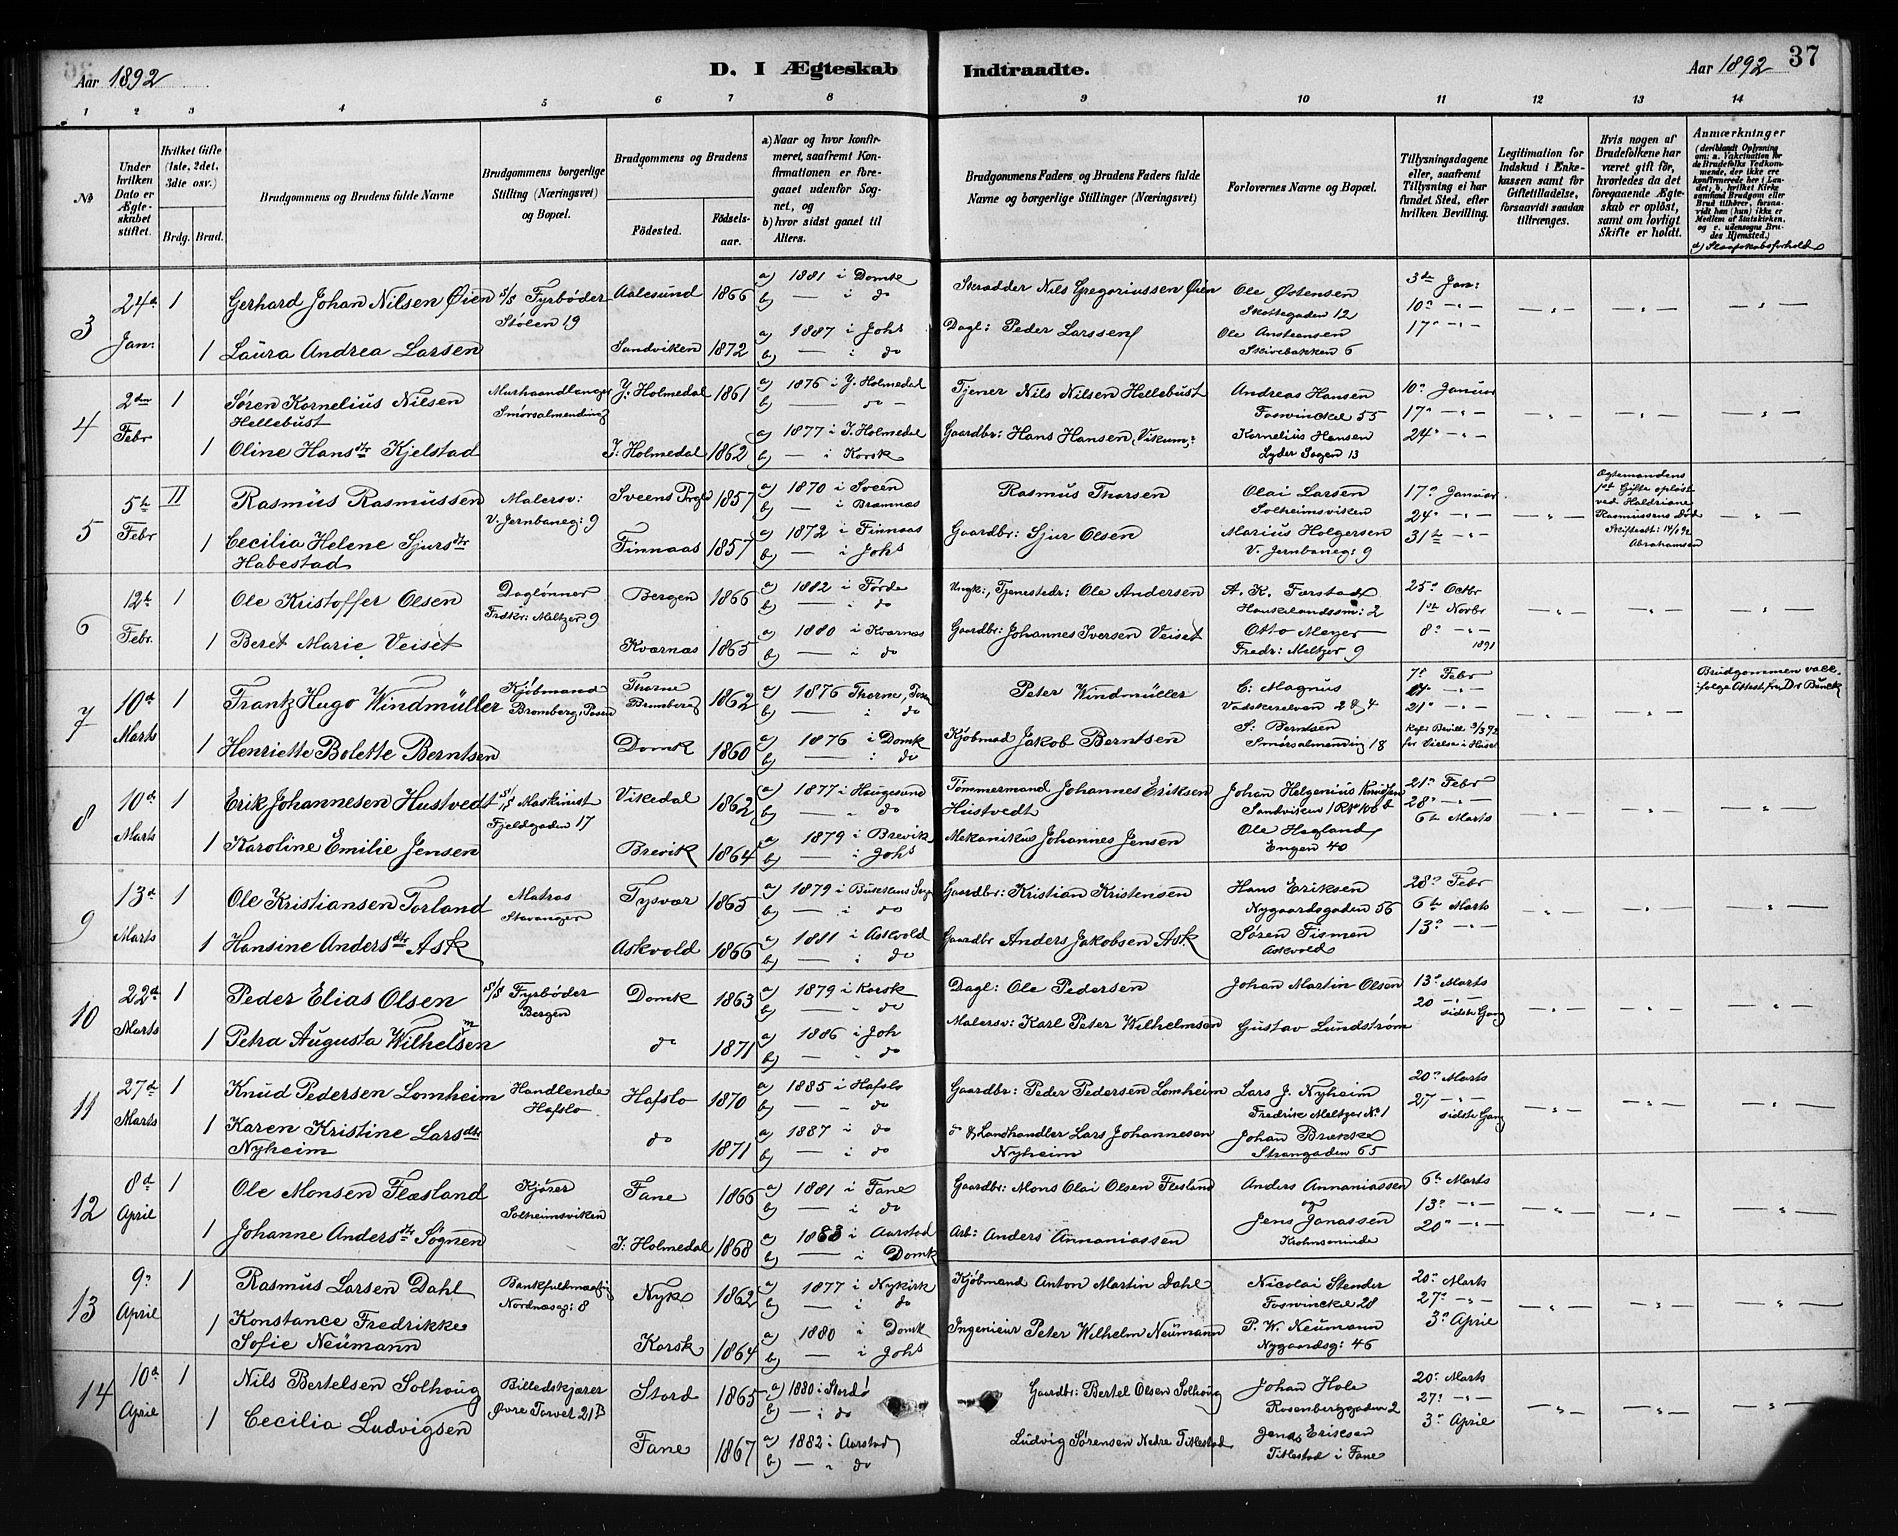 Aar 1892 D. I Ægteskab Indtraadte. Aar 1892 37
1 2 3 4 5 6 7 8 9 10 11 12 13 14
No
Under hvilken Dato er Ægteskabet stiftet.
Hvilket Gifte (1ste, 2det, 3die osv.)
Brdg. Brud.
Brudgommens og Brudens fulde Navne
Brudgommens borgerlige Stilling (Næringsvei) og Bopæl.
Brudgommens og Brudens
Fødested. Fødselsaar.
a) Naar og hvor konfirmeret, saafremt Konfirmationen er foregaaet udenfor Sognet, og
b) hvor sidst gaaet til Alters.
Brudgommens Faders og Brudens Faders fulde Navne og borgerlige Stillinger (Næringsvei)
Forlovernes Navne og Bopæl.
Tillysningsdagene eller, saafremt Tillysning ei har fundet Sted, efter hvilken Bevilling.
Legitimation for Indskud i Enkekassen samt for Giftetilladelse, forsaavidt saadan tiltrænges.
Hvis nogen af Brudefolkene har været gift før, hvorledes da det foregaaende Ægteskab er opløst, samt om lovligt Skifte er holdt.
Anmærkninger
(deriblandt Oplysning om: a. Vakcination for de Brudefolks Vedkommende, der ikke ere konfirmerede her i Landet, b. hvilket Kirkesamfund Brudgom eller Brud tilhører, forsaavidt han (hun) ikke er Medlem af Statskirken, og c. udensogns Brudes Hjemsted.)
d) Slægtskabsforhold
3 24d Jan: 1 Gerhard Johan Nilsen Øien S/S Fyrbøder Stølen 19 Aalesund 1866 a) 1881 i Domk b) — i do Skrædder Nils Gregoriussen Øien Ole Østensen Skottegaden 12 3die Jan: 10de -"- 17de -"-
1 Laura Andrea Larsen Sandviken 1872 a) 1887 i Johs b) — i do Dagl: Peder Larssen Ole Anstensen Skivebakken 6
4 2den Febr 1 Søren Kornelius Nilsen Hellebust Murhaandlanger Smørsalmending Y: Holmedal 1861 a) 1876 i Y. Holmedal b) — do — Tjener Nils Nilsen Hellebust Andreas Hansen Foswinckel 55 10de Januar 17de -"- 24de -"-
1 Oline Hansdtr Kjelstad I: Holmedal 1862 a) 1877 i I. Holmedal b) — i Korsk Gaardbr: Hans Hansen, Vikum: Kornelius Hansen Lyder Sagen 13
5 5te Febr II Rasmus Rasmussen Malersv: V. Jernbaneg: 9 Sveens Prgld 1857 a) 1870 i Sveen b) — i Bremnæs Rasmus Thorsen Olai Larsen Solheimsviken 17de Januar 24de -"- 31te -"- Ægtemandens 1ste Gifte opløst ved Haldriane Rasmussens Død Skifteatt: 14/1 92 Abrahamsen
1 Cecilia Helene Sjursdtr Habestad Finnaas 1857 a) 1872 i Finnaas b) — i Johs Gaardbr: Sjur Olsen Marius Holgersen V. Jernbaneg: 9
6 12te Febr. 1 Ole Kristoffer Olsen Daglønner Fredkr: Meltzer 9 Bergen 1866 a) 1882 i Førde b) — i do Ungk:, Tjenestedr: Ole Andersen A. K. Farstad Haukelandssm: 2 25de Octbr 1ste Novbr 8de -"- 1891
1 Beret Marie Veiset Kværnæs 1865 a) 1880 i Kværnæs b) — i do Gaardbr: Johannes Iversen Veiset Otto Meyer Fredr: Meltzer 9
7 10d Marts 1 Frantz Hugo Windmüller Kjøbmand Bromberg, Posen Thorne Bromberg 1862 a) 1876 Thorne, Posen b) — i do Peter Windmüller C: Magnus Vadskerelven 2 & 4 7de Febr -"- 21de -"- Kgls Bevill 3/3 92 for Vielse i Huset Brudgommen vacc. ifølge Attest fra Dr Bunck
1 Henriette Bolette Berntsen Domk 1860 a) 1876 i Domk b) — i do Kjøbmad Jakob Berntsen S: Berntsen Smørsalmending 18
8 10d Marts 1 Erik Johannesen Hustvedt S/S Maskinist Fjeldgaden 17 Vikedal 1862 a) 1877 i Haugesund b) — do Tømmermand Johannes Eriksen Hustvedt Johan Helgenius Knudsen Sandviken 1 R No 106 b 21de Febr 28de -"- 6te Marts
1 Karoline Emilie Jensen Brevik 1864 a) 1879 i Brevik b) — i Johs Mekanikus Johannes Jensen Ole Hagland Engen 40
9 13d Marts 1 Ole Kristiansen Torland Matros Stavanger Tysvær 1865 a) 1879 i b) — i do Gaardbr: Kristian Kristensen Hans Eriksen Nygaardsgaden 56 28de Febr 6te Marts 13de -"-
1 Hansine Andersdtr Ask Askvold 1866 a) 1881 i Askvold b) — i do Gaardbr Anders Jakobsen Ask Søren Tismen Askvold
10 22d Marts 1 Peder Elias Olsen S/S Fyrbøder Bergen Domk 1863 a) 1879 i Korsk b) — " do Dagl: Ole Pedersen Johan Martin Olsen 13de Marts 20 -"- sidste Gang
1 Petra Augusta Wilhelmsen do 1871 a) 1886 i Joh b) — " do Malersv: Karl Peter Wilhelmsen Gustav Lundstrøm
11 27d Marts 1 Knud Pedersen Lomheim Handlende Hafslo Hafslo 1870 a) 1885 i Hafslo b) — " do Gaardbr: Peder Pedersen Lomheim Lars J. Nyheim Fredrik Meltzer No 1 20de Marts 27 -"- sidste Gang
1 Karen Kristine Larsdtr Nyheim do 1871 a) 1887 i do b) — i do do & Landhandler Lars Johannesen Nyheim Johan Brække Strangaden 65
12 8d April 1 Ole Monsen Flæsland Kjører Solheimsviken Fane 1866 a) 1881 i Fane b) — i do Gaardbr: Mons Olai Olsen Flesland Anders Annaniassen og 6te Marts 13de -"- 20de -"-
1 Johanne Andersdtr Søgnen I: Holmedal 1868 a) 1883 i Aarstad b) — i Domk Arb: Anders Annaniassen Jens Janassen Krohnsminde
13 9de April 1 Rasmus Larsen Dahl Bankfuldmægtig Nordnæsg: 8 Nyk 1862 a) 1877 i Nykirk b) — i do Kjøbmand Anton Martin Dahl Nicolai Stender Foswinckel 28 20de Marts 27de -"- 3de April
1 Konstance Fredrikke Sofie Neümann Korsk 1864 a) 1880 i Domk b) — i Johs Ingenieur Peter Wilhelm Neümann P. W. Neümann Nygaardsg: 46
14 10d April 1 Nils Bertelsen Solhoug Billedskjærer Øvre Torvet 21 B Stord 1865 a) 1880 i Stordø b) — i do Gaardbr: Bertel Olsen Solhoug Johan Hole Rosenberggaden 2 20de Marts 27de -"- 3de April
1 Cecilia Ludvigsen Fane 1867 a) 1882 i Aarstad b) — " do Ludvig Sørensen Nedre Titlestad Jens Eriksen Titlestad i Fane